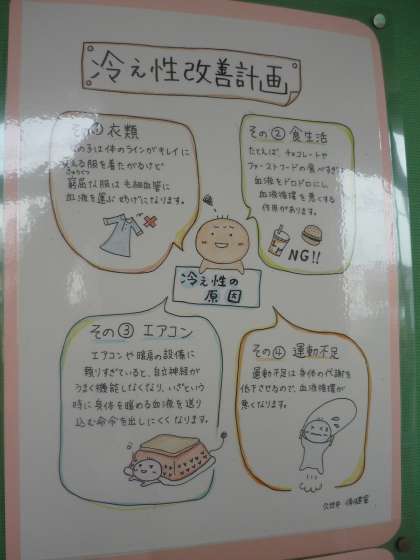 冷え性改善計画
その① 衣類
の子は体のラインがキレイに
える服を着たがるけど
きゅうくつ
窮屈な服は毛細血管に
血液を運ぶ妨げになります。
その② 食生活
たとえば、チョコレートや
ファーストフードの食べすぎは
血液をドロドロにし、
血液循環を悪くする
作用があります。
NG!!
冷え性の
原因
その③ エアコン
エアコンや暖房の設備に
頼りすぎていると、自立神経が
うまく機能しなくなり、いざという
時に身体を暖める血液を送り
込む命令を出しにくくなります。
その④ 運動不足
運動不足は身体の代謝を
低下させるので、血液循環が
悪くなります。
保健室